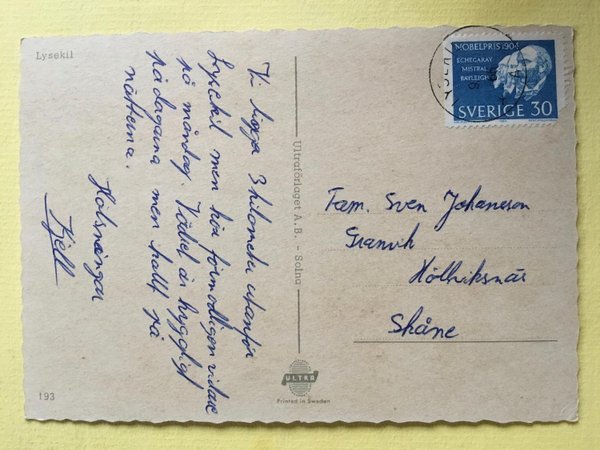 Lysekil
Vi ligga 3 kilometer utanför
Lysekil men kör förmodligen vidare
på måndag. Vädret är hyggligt
på dagarna men kallt på
nätterna.
Hälsningar
Kjell
193
Ultraförlaget A.B. - Solna
ULTRA
Printed in Sweden
NOBELPRIS 1904
ECHEGARAY
MISTRAL
RAYLEIGH
SVERIGE 30
Fam. Sven Johansson
Granvik
Skåne